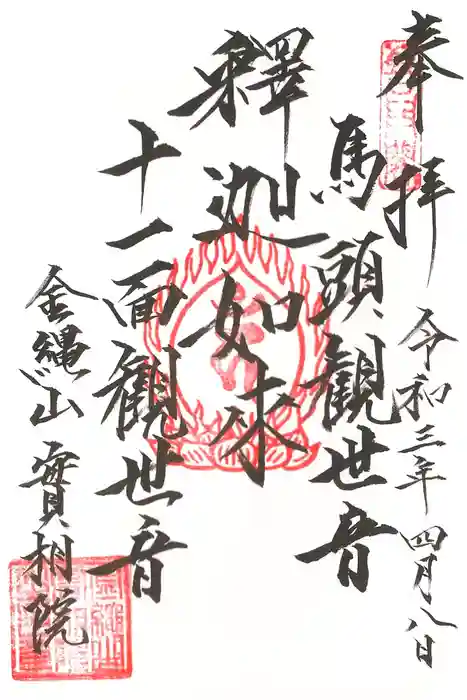 奉拝
令和三年四月八日
馬頭観世音
釋迦如來
十一面観世音
金縄山
實相院